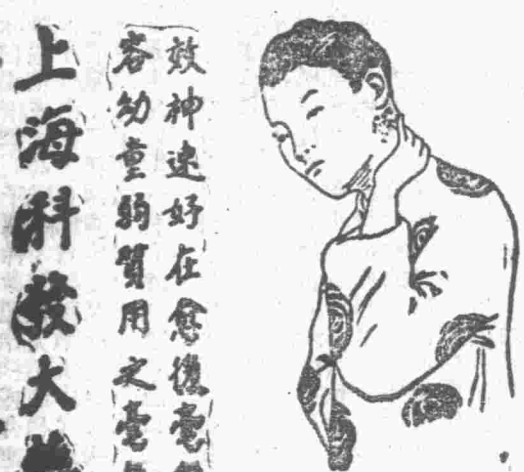 效神速好在愈後毫
幼童弱質用之毫
上海科發大